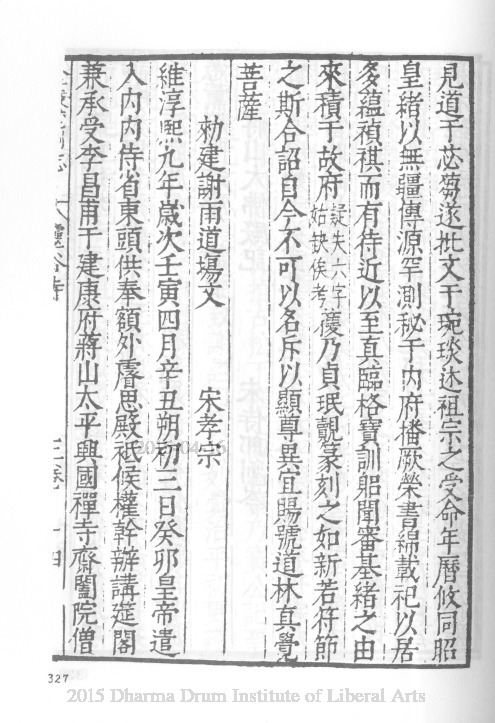 見道于苾蒭遂批文于琬琰述祖宗之受命年曆攸同昭
皇緒以無疆傳源罕測秘于內府播厥榮書綿載祀以居
多蘊禎祺而有待近以至真臨格寶訓躬聞審基緒之由
來積于故府疑失六字姑缺俟考優乃貞珉覿篆刻之如新若符節
之斯合詔自今不可以名斥以顯尊異宜賜號道林真覺
菩薩
勑建謝雨道場文 宋孝宗
維淳熙九年歲次壬寅四月辛丑朔初三日癸卯皇帝遣
入內內侍省東頭供奉額外睿思殿祗候權幹辦講筵閣
兼承受李昌甫于建康府蔣山太平興國禪寺齋闔院僧
三卷
327
2015 Dharma Drum Institute of Liberal Arts